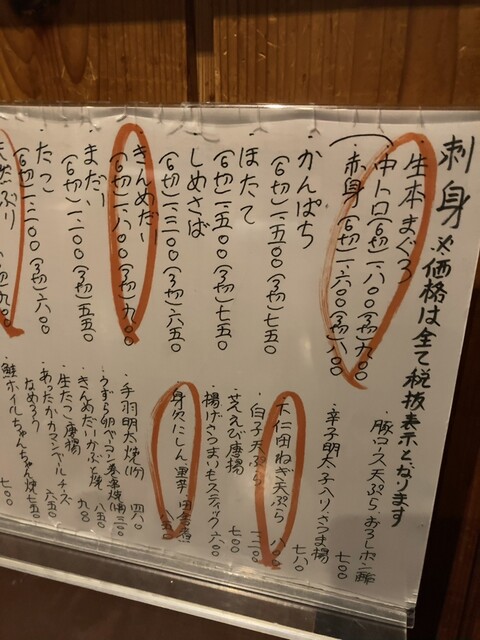 刺身 ※価格は全て税抜表示となります
・生本まぐろ
中トロ(6切)一、八〇〇(3切)九〇〇
赤身(6切)一、六〇〇(3切)八〇〇
・かんぱち
(6切)一、五〇〇(3切)七五〇
・ほたて
(6切)一、五〇〇(3切)七五〇
・しめさば
(6切)一、三〇〇(3切)六五〇
・きんめだい
(6切)一、八〇〇(3切)九〇〇
・まだい
(6切)一、一〇〇(3切)五五〇
・たこ
(6切)一、二〇〇(3切)六〇〇
・天然ぶり
九〇〇
・豚ロース天ぷらおろしポン酢
七〇〇
・辛子明太子入りさつま揚
七八〇
・下仁田ねぎ天ぷら 八〇〇
・白子天ぷら 一、二〇〇
・芝えび唐揚 七〇〇
・揚げさつまいもスティック 六〇〇
・身欠にしん里芋田舎煮
八五〇
・手羽明太焼(1ヶ) 四八〇
・うずら卵ベーコン巻串焼(2本)三〇〇
・きんめだいかぶと焼 八五〇
・生たこ唐揚 九〇〇
・あったかカマンベールチーズ 六五〇
・なめろう 七五〇
・鮭ホイルちゃんちゃん焼 七〇〇